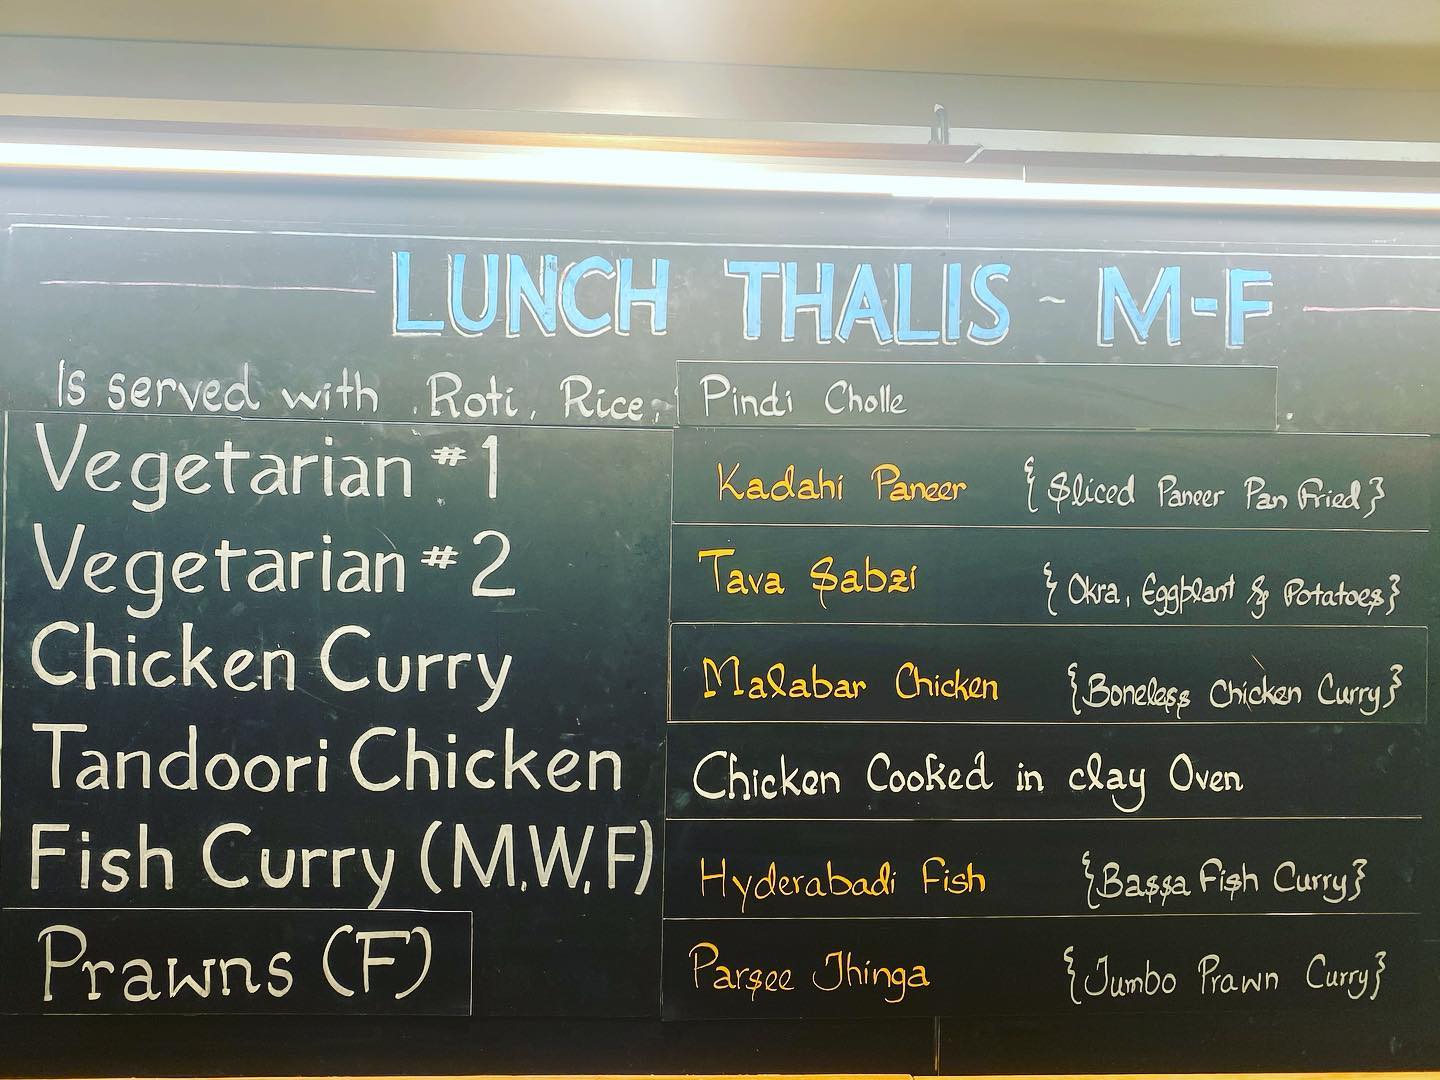 LUNCH THALIS ~ M-F
Is served with Roti, Rice, Pindi Cholle.
Vegetarian #1 Kadahi Paneer {Sliced Paneer Pan Fried}
Vegetarian #2 Tava Sabzi {Okra, Eggplant & Potatoes}
Chicken Curry Malabar Chicken {Boneless Chicken Curry}
Tandoori Chicken Chicken Cooked in clay Oven
Fish Curry (M,W,F) Hyderabadi Fish {Bassa Fish Curry}
Prawns (F) Parsee Jhinga {Jumbo Prawn Curry}